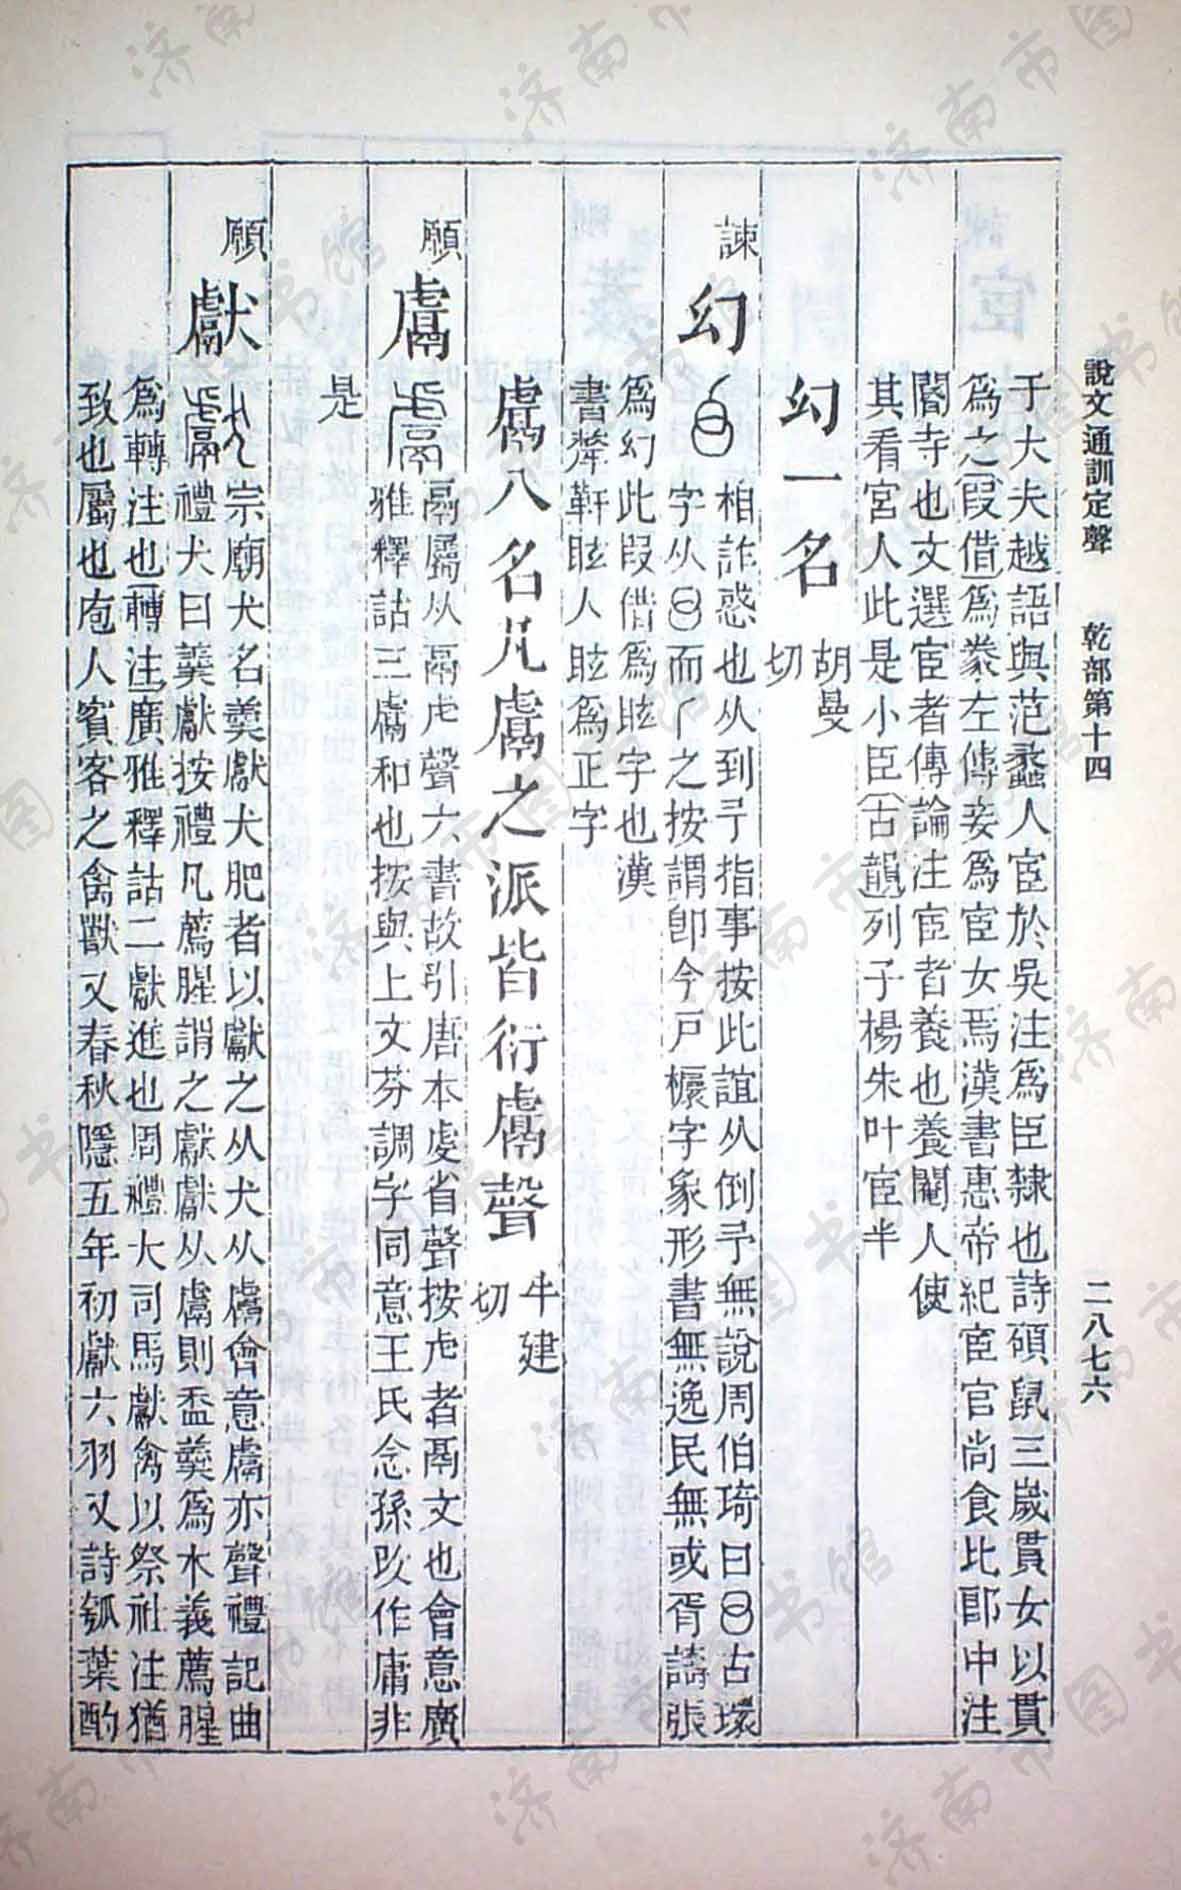 說文通訓定聲　乾部第十四　二八七六
于大夫越語與范蠡人宦於吳注爲臣隸也詩碩鼠三歲貫女以貫
爲之叚借爲豢左傳妾爲宦女焉漢書惠帝紀宦官尚食比郎中注
閽寺也文選宦者傳論注宦者養也養閹人使
其看宮人此是小臣古韻列子楊朱叶宦半
幻一名 胡曼
切
諫
幻
相詐惑也从到予指事按此誼从倒予無說周伯琦曰古環
字从而之按謂卽今戸櫶字象形書無逸民無或胥譸張
爲幻此叚借爲眩字也漢
書犛靬眩人眩爲正字
鬳八名凡鬳之派皆衍鬳聲 牛建
切
願
鬳
鬲屬从鬲虍聲六書故引唐本虔省聲按虍者鬲文也會意廣
雅釋詁三鬳和也按與上文芬調字同意王氏念孫改作庸非
是
願
獻
宗廟犬名羹獻犬肥者以獻之从犬从鬳會意鬳亦聲禮記曲
禮犬曰羹獻按禮凡薦腥謂之獻獻从鬳則盉羹爲本義薦腥
爲轉注也轉注廣雅釋詁二獻進也周禮大司馬獻禽以祭社注猶
致也屬也庖人賓客之禽獸又春秋隱五年初獻六羽又詩瓠葉酌